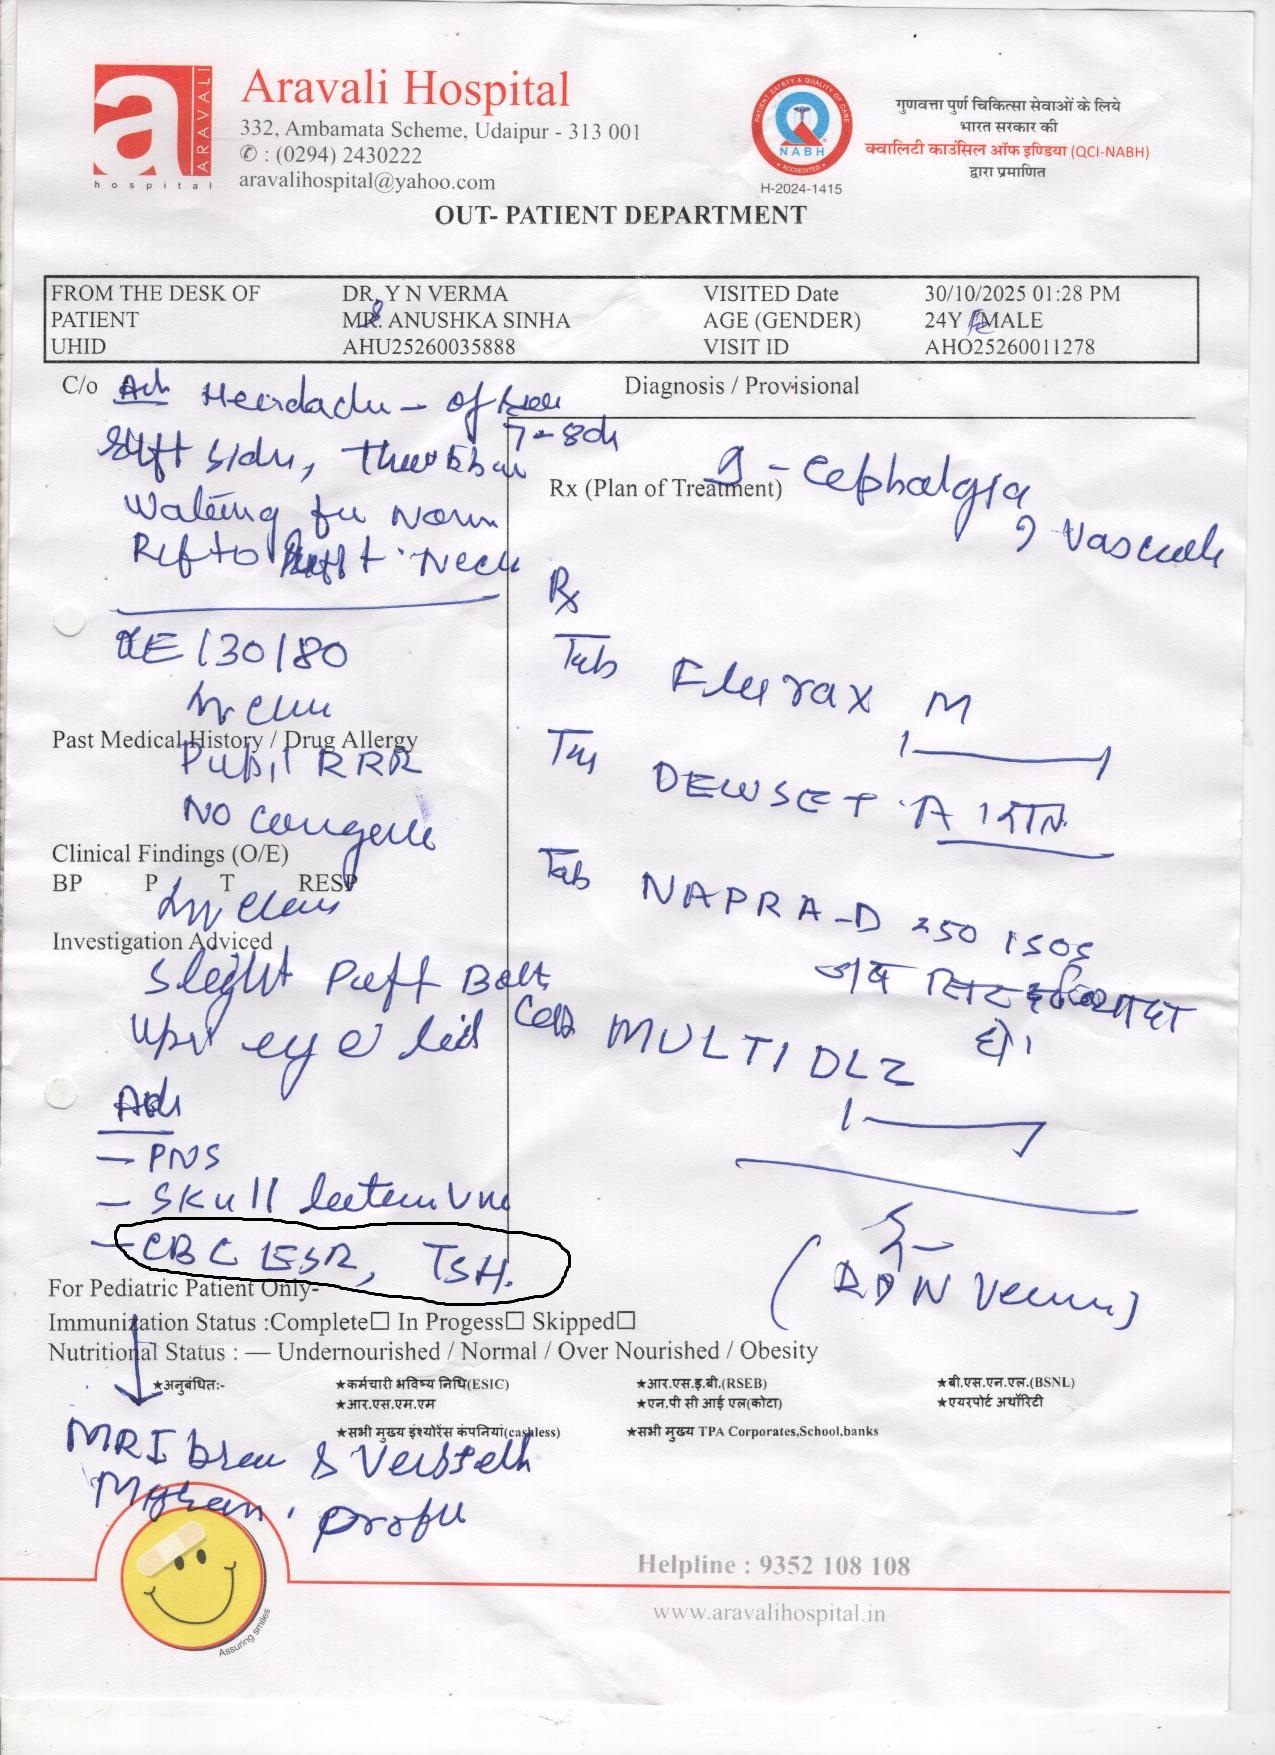 a
ARAVALI
hospital
Aravali Hospital
332, Ambamata Scheme, Udaipur - 313 001
✆ : (0294) 2430222
aravalihospital@yahoo.com
PATIENT SAFETY & QUALITY OF CARE
NABH
ACCREDITED
H-2024-1415
गुणवत्ता पुर्ण चिकित्सा सेवाओं के लिये
भारत सरकार की
क्वालिटी काउंसिल ऑफ इण्डिया (QCI-NABH)
द्वारा प्रमाणित
OUT- PATIENT DEPARTMENT
FROM THE DESK OF DR. Y N VERMA VISITED Date 30/10/2025 01:28 PM
PATIENT MRS. ANUSHKA SINHA AGE (GENDER) 24Y FEMALE
UHID AHU25260035888 VISIT ID AHO25260011278
C/o Headache - off
7-8d
side,
Ref to Neck
130/80
Past Medical History / Drug Allergy
Pupil RRR
NO
Clinical Findings (O/E)
BP P T RESP
Investigation Adviced
Slight Puff Both
Upr eye lid
Adv
- PNS
- Skull
- CBC ESR, TSH.
Diagnosis / Provisional
Rx (Plan of Treatment)
? - Cephalgia
? Vascular
Rx
Tab M
Tab A
Tab NAPRA-D 250 1 SOS
जब सिर दर्द ज्यादा
हो।
Cap MULTI DLZ
For Pediatric Patient Only-
Immunization Status :Complete☐ In Progess☐ Skipped☐
Nutritional Status : — Undernourished / Normal / Over Nourished / Obesity
★अनुबंधितः- ★कर्मचारी भविष्य निधि(ESIC) ★आर.एस.इ.बी.(RSEB) ★बी.एस.एन.एल.(BSNL)
★आर.एस.एम.एम ★एन.पी सी आई एल(कोटा) ★एयरपोर्ट अथॉरिटी
★सभी मुख्य इंश्योरेंस कंपनियां(cashless) ★सभी मुख्य TPA Corporates,School,banks
MRI brain &
Assuring smiles
Helpline : 9352 108 108
www.aravalihospital.in